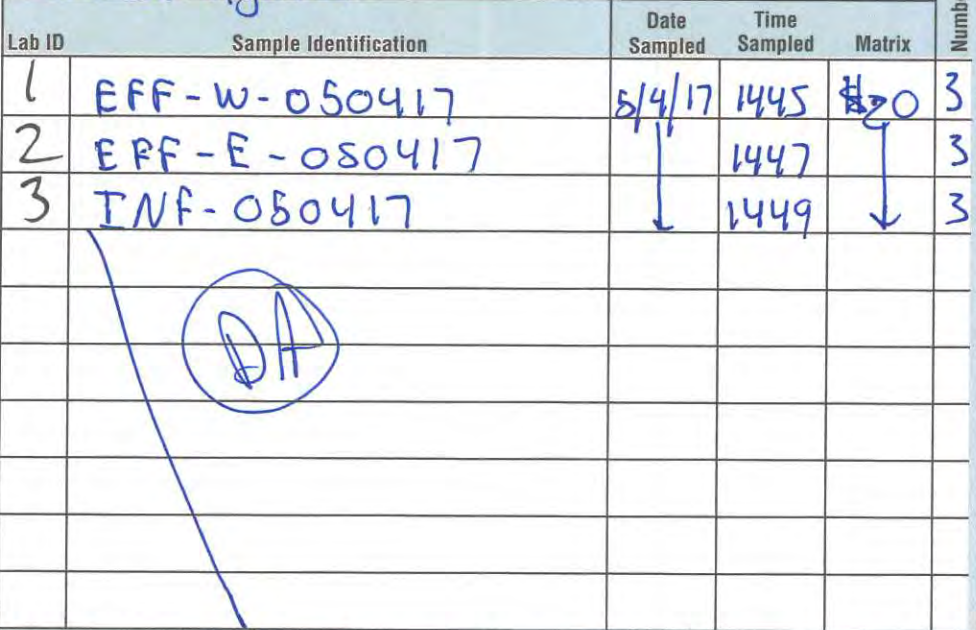 Lab ID Sample Identification Date Sampled Time Sampled Matrix Numbe
1 EFF-W-050417 5/4/17 1445 H20 3
2 EFF-E-050417 1447 3
3 INF-050417 1449 3
DA